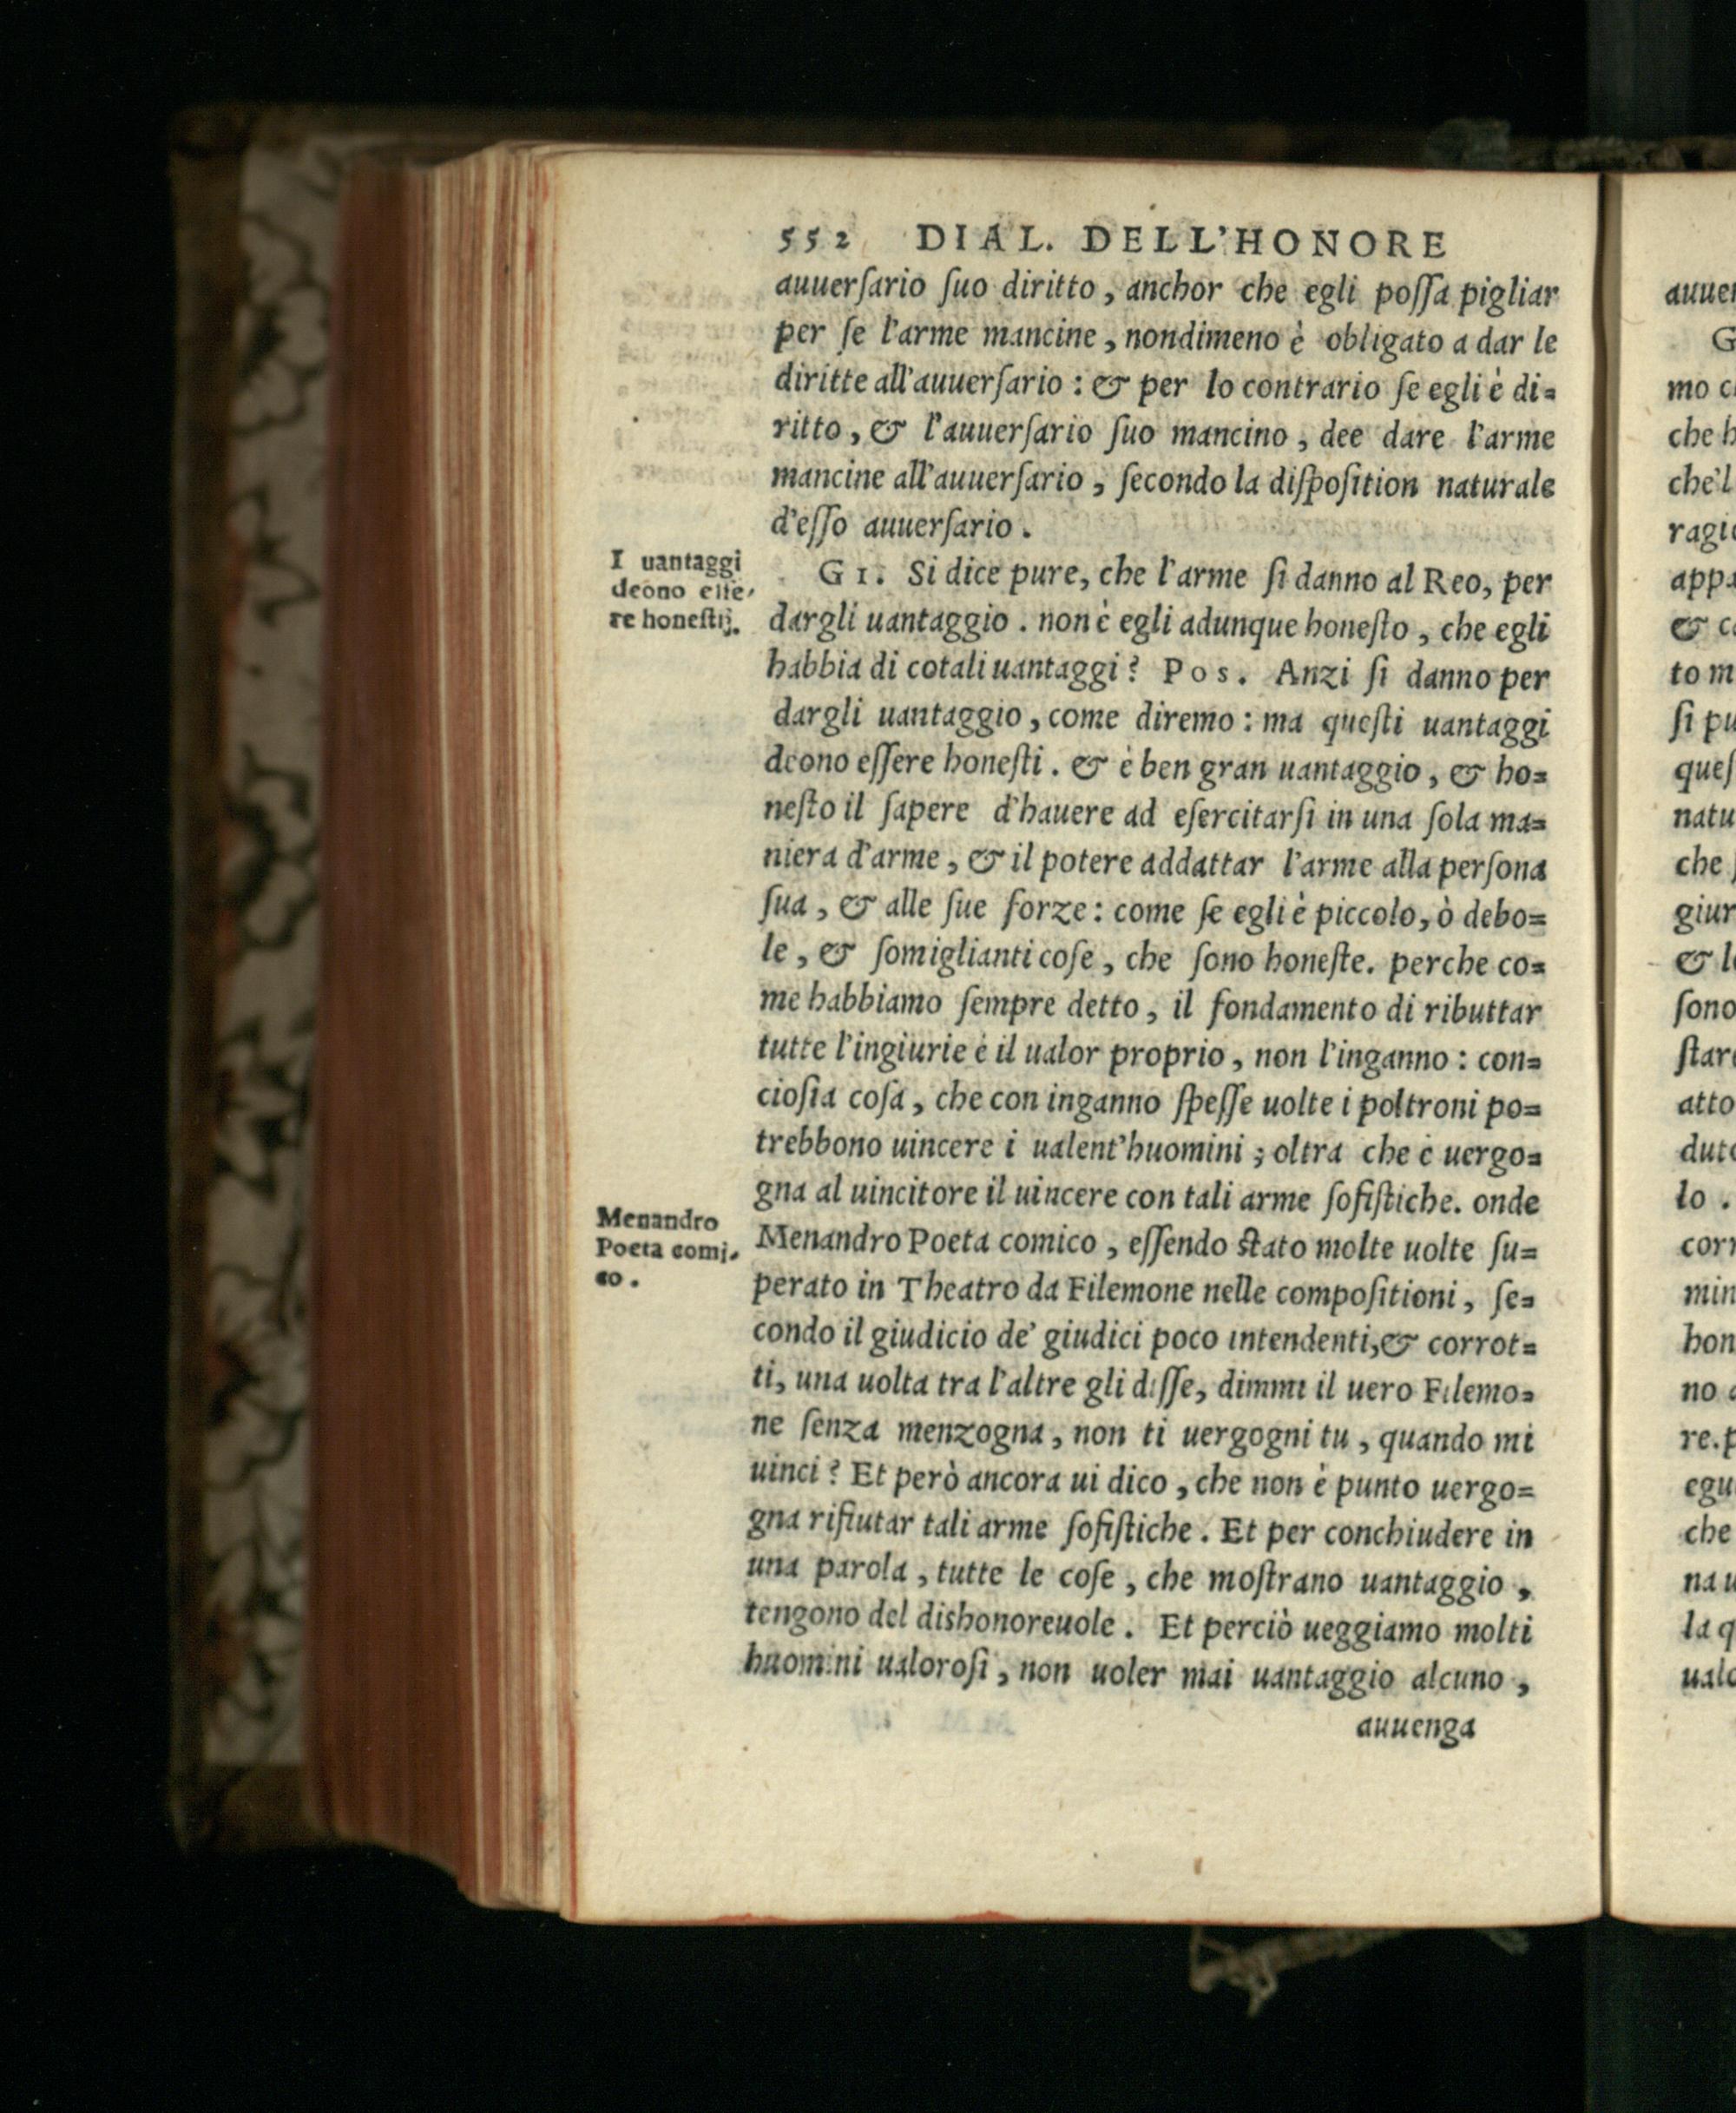 552 DIAL. DELL'HONORE
auuerſario ſuo diritto, anchor che egli poſſa pigliar
per ſe l'arme mancine, nondimeno è obligato a dar le
diritte all'auuerſario: & per lo contrario ſe egli è di=
ritto, & l'auuerſario ſuo mancino, dee dare l'arme
mancine all'auuerſario, ſecondo la diſpoſition naturale
d'eſſo auuerſario.
I uantaggi
deono eſſe,
re honeſtij.
GI. Si dice pure, che l'arme ſi danno al Reo, per
dargli uantaggio. non è egli adunque honeſto, che egli
habbia di cotali uantaggi? POS. Anzi ſi danno per
dargli uantaggio, come diremo: ma queſti uantaggi
deono eſſere honeſti. & è ben gran uantaggio, & ho=
neſto il ſapere d'hauere ad eſercitarſi in una ſola ma=
niera d'arme, & il potere addattar l'arme alla perſona
ſua, & alle ſue forze: come ſe egli è piccolo, ò debo=
le, & ſomiglianti coſe, che ſono honeſte. perche co=
me habbiamo ſempre detto, il fondamento di ributtar
tutte l'ingiurie è il ualor proprio, non l'inganno: con=
cioſia coſa, che con inganno ſpeſſe uolte i poltroni po=
trebbono uincere i ualent'huomini; oltra che è uergo=
gna al uincitore il uincere con tali arme ſofiſtiche. onde
Menandro
Poeta comi,
co.
Menandro Poeta comico, eſſendo ſtato molte uolte ſu=
perato in Theatro da Filemone nelle compoſitioni, ſe=
condo il giudicio de' giudici poco intendenti, & corrot=
ti, una uolta tra l'altre gli diſſe, dimmi il uero Filemo=
ne ſenza menzogna, non ti uergogni tu, quando mi
uinci? Et però ancora ui dico, che non è punto uergo=
gna rifiutar tali arme ſofiſtiche. Et per conchiudere in
una parola, tutte le coſe, che moſtrano uantaggio,
tengono del dishonoreuole. Et perciò ueggiamo molti
huomini ualoroſi, non uoler mai uantaggio alcuno,
auuenga